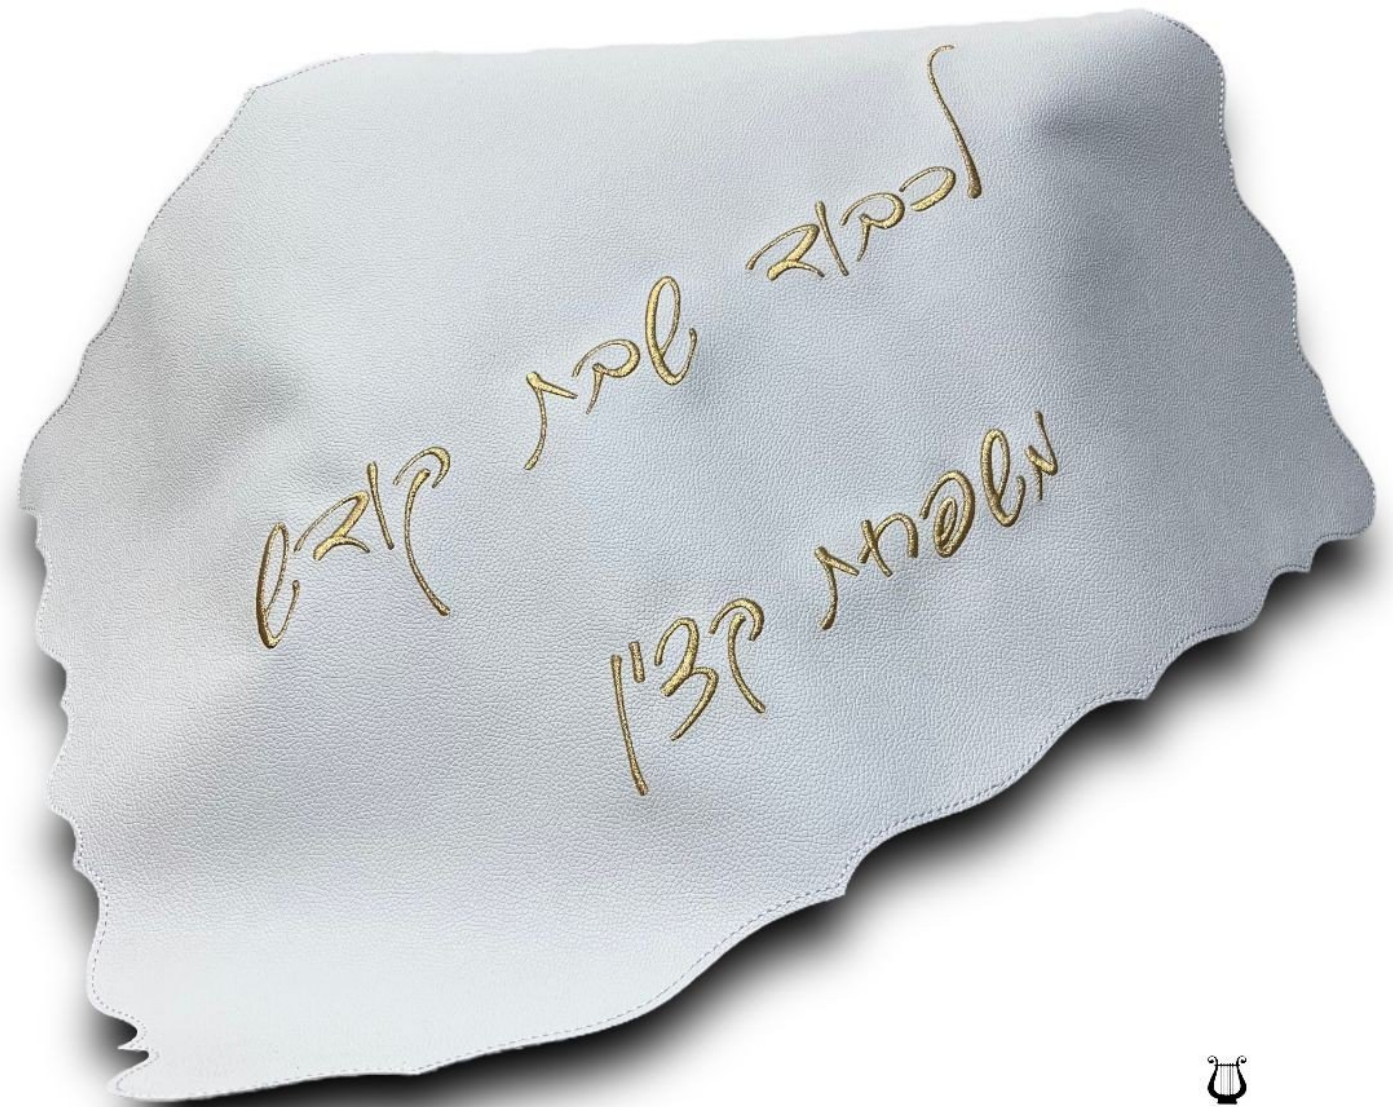 לכבוד שבת קודש
משפחת קצין